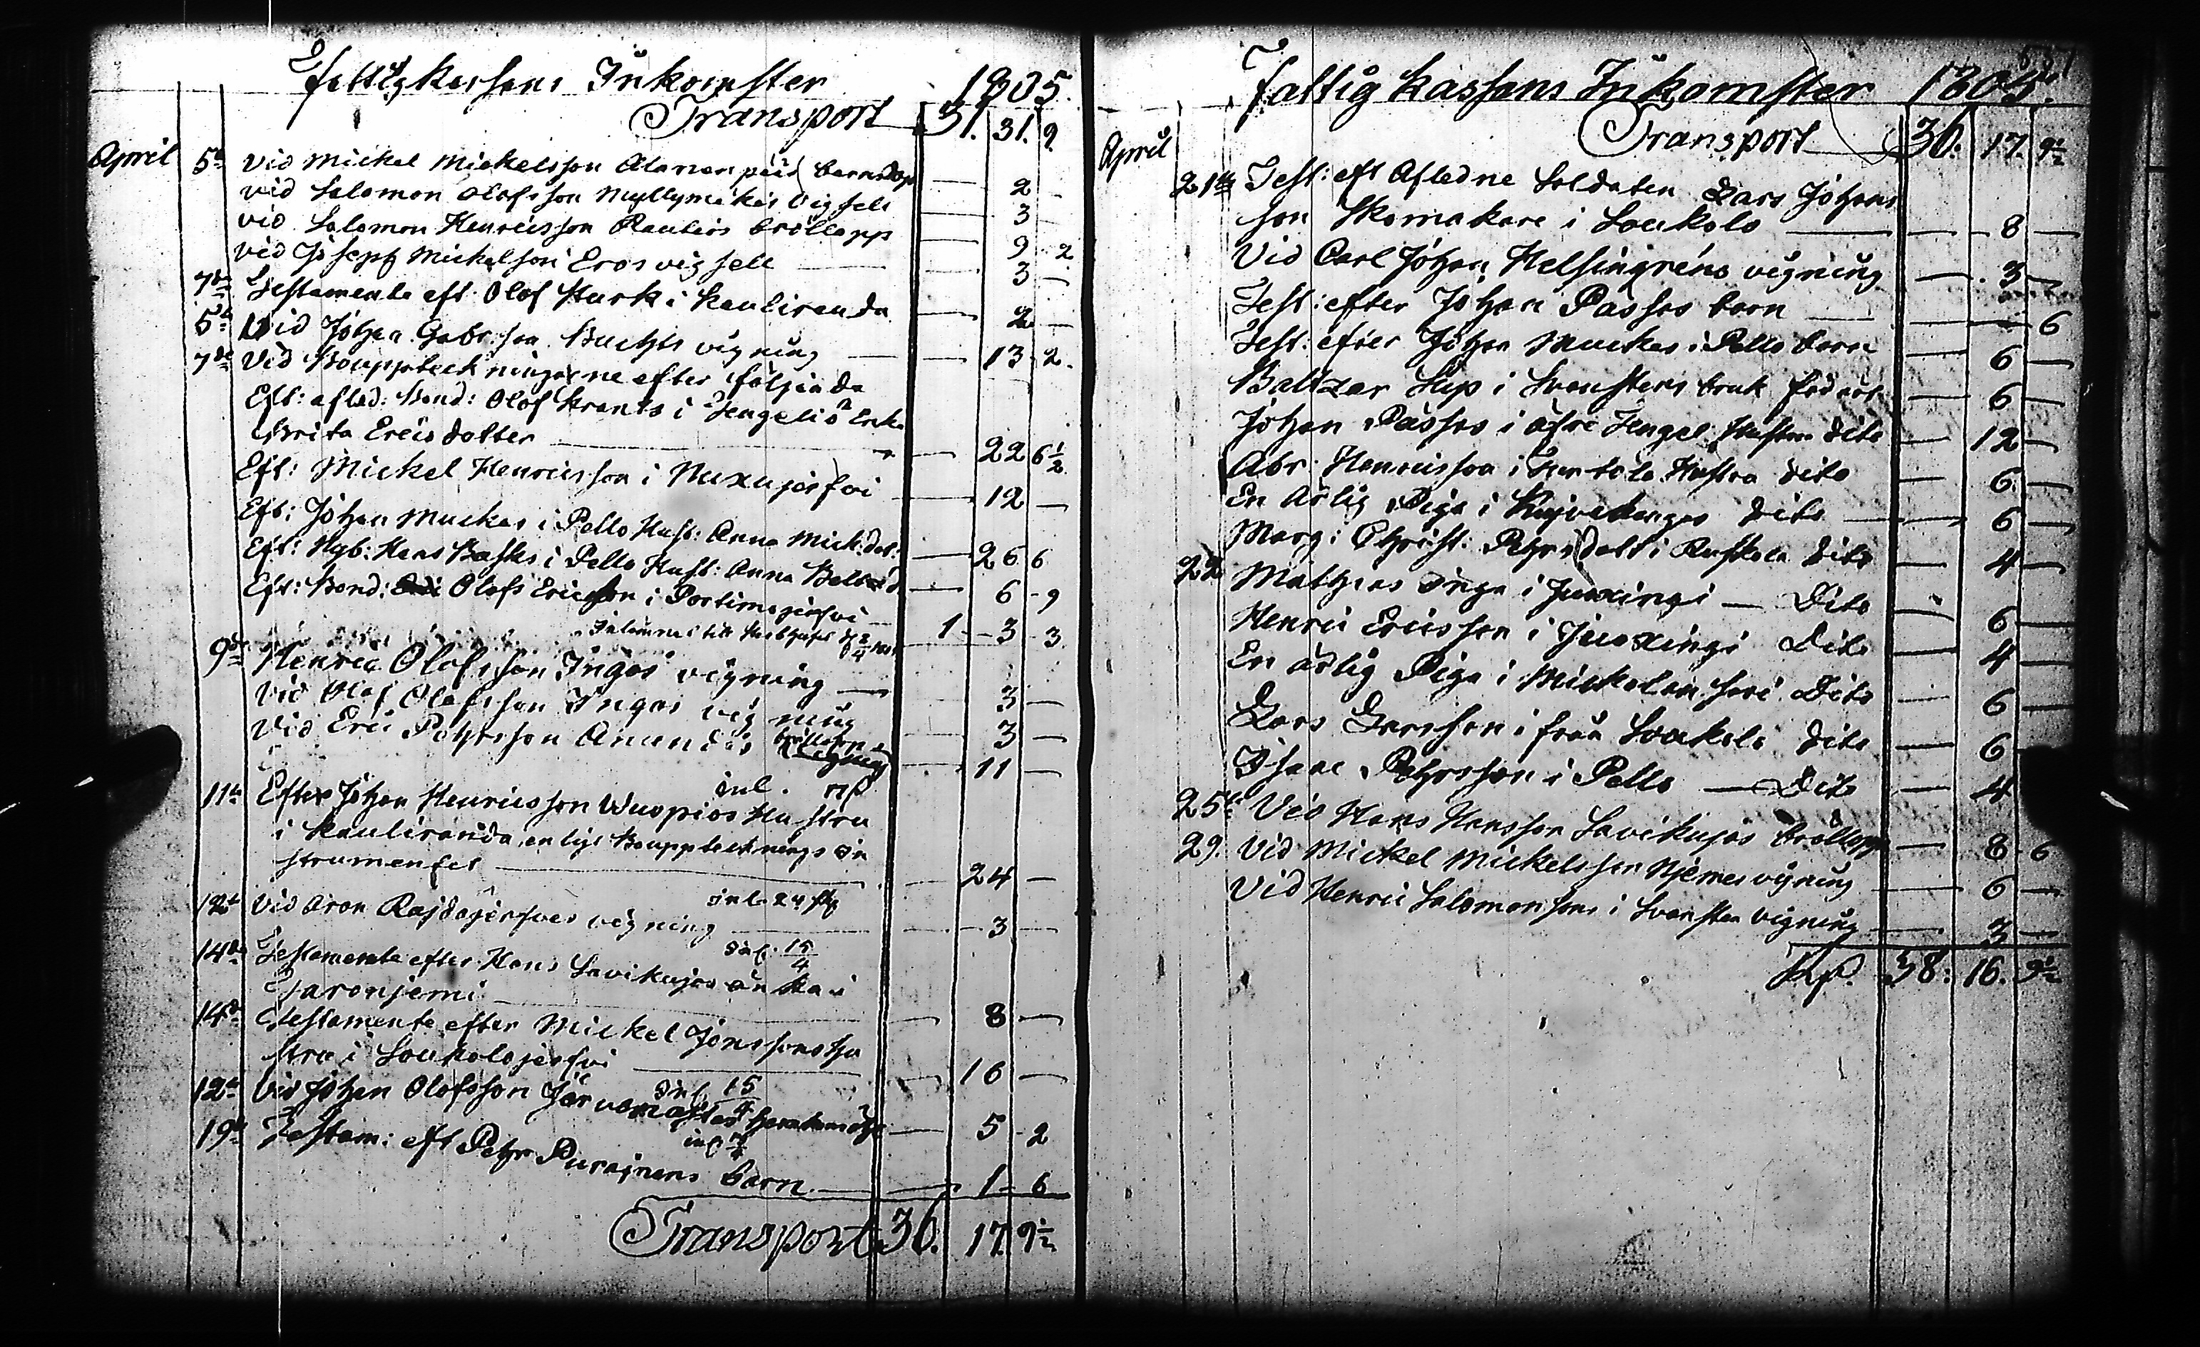 Fattigkassans Inkomster 1805.
Transport 31. 31. 9
April 5te Vid Mickel Mickelsson Alanen barndop — 2 —
Vid Salomon Olofsson Myllymäkis vigsell — 3 —
Vid Salomon Henricsson Rautios bröllopp — 9 2
Vid Joseph Mickelson Eros vigsell — 3 —
7de Testamente eft Olof Kurk i Kauliranda — 2 —
5te Vid Johan Gabr:son Buchts vigning — 13 2.
7de Vid Bouppteckningarne efter följande
Eft: afled: Bond: Olof Krants i Jengelis Enka
Brita Ericsdotter — 22 6½
Eft: Mickel Henricsson i Muxujerfvi — 12 —
Eft: Johan Muckas i Pello Hust: Anna Mick:dot: — 26 6
Eft: Nyb: Hans Basks i Pello Hust: Anna — 6 9
Eft: Bond: Olofs Ericsson i Portimojerfvi —
1 3 3
9de Henric Olofsson Ingos vigning — 3 —
Vid Olof Olofsson Ingos vigning — 3 —
Vid Eric Pehrsson Anundis bröllopp — 11 —
11te Efter Johan Henricsson Wuopios Hustru
i Kauliranda, enligt Bouppteckningsin
strumentet — 24 —
inl. 24 sk
12te Vid Aron Rajdajerfves vigning — 3 —
inl. 15/4
14de Testamente efter Hans Lavikujas änka i
Jaronjemi — 8 —
14de Testamente efter Mickel Jönssons hu
stru i Loukolajerfvi — 16 —
inl 15/4
12te Vid Johan Olofsson — 5 2
19de Testam: eft Pehr Purainens barn — 1 6
Transport 36. 17. 9½
Fattig Kassans Inkomster 1805.
Transport 36. 17. 9½
April
21te Test: eft Afledne Soldaten Lars Johans
son Skomakare i Loukolo — 8 —
Vid Carl Johan Helsingréns vigning — 3 —
Test: efter Johan Passos barn — 6
Test: efter Johan Muckas i Pello barn — 6 —
Baltzar Kyp i Svansteins bruk — 6 —
Johan Passos i öfre Jengel: Hustru dito — 12 —
Abr: Henricsson i Turtola Hustru dito — 6 —
En ärlig Piga i dito — 6 —
Marg: Christ: Pehrsdott i Ruskola dito — 4 —
22 Mathias Inga i Juoxingi — Dito — 6 —
Henric Ericsson i Juoxingi Dito — 4 —
En ärlig Piga i Mickolansari Dito — 6 —
Lars Larsson i från Loukolo dito — 6 —
Isaac Pehrsson i Pello — Dito — 4
25te Vid Hans Hansson Lavikujas bröllopp — 8 6
29. Vid Mickel Mickelsson Njemes vigning — 6 —
Vid Henric Salomonsons i Svanstein vigning — 3 —
38: 16. 9½